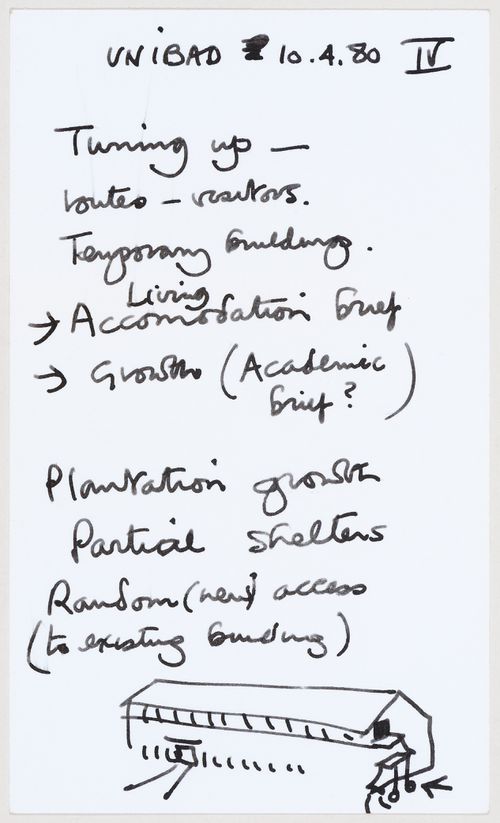 UNIBAD 10.4.80 IV
Tuning up —
routes – visitors.
Temporary buildings.
Living
→ Accomodation brief
→ Growth (Academic
brief?)
Plantation growth
Partial shelters
Random (new) access
(to existing building)